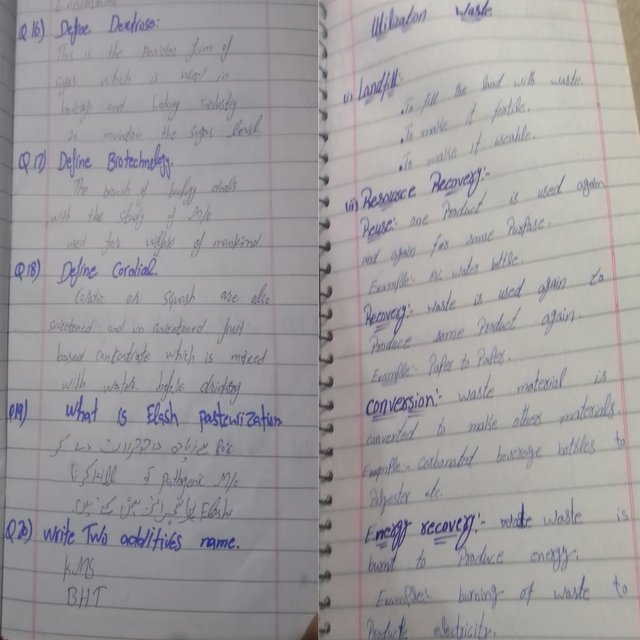 Q 16) Define Dextrose:
This is the form of
sugar which is used in
and baking industry
the sugar level
Q 17) Define Biotechnology.
The branch of biology deals
with the study of M/o
used for of mankind
Q 18) Define Cordial.
or squash are also
sweetened and un sweetened fruit
based concentrate which is mixed
with water before drinking
Q19) What is Flash
Kill Pathogenic M/o
Flash
Q 20) write Two additives name.
KMS
BHT
Utilization Waste
i) Landfill:
. To fill the land with waste
. To make it fertile.
. To make it
ii) Resource Recovery:-
Reuse: one Product is used again
and again for same
Example: water bottle.
Recovery:- waste is used again to
Produce same Product again.
Example:- Paper to Paper.
conversion:- waste material is
converted to make other materials.
Example:- carbonated beverage bottles to
Polyester etc.
Energy recovery:- waste is
burnt to Produce energy.
Example:- burning of waste to
Produce electricity.